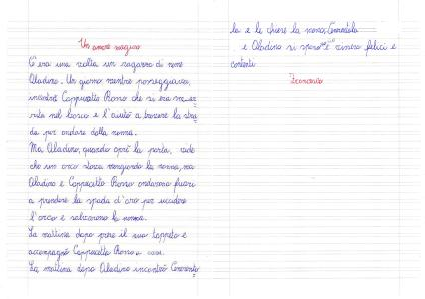 Un amore magico
C'era una volta un ragazzo di nome
Aladino. Un giorno mentre passeggiava,
incontrò Cappuccetto Rosso che si era smar
rita nel bosco e l'aiutò a trovare la stra
da per andare dalla nonna.
Ma Aladino, quando aprì la porta, vide
che un orco stava mangiando la nonna, ma
Aladino e Cappuccetto Rosso andarono fuori
a prendere la spada d'oro per uccidere
l'orco e salvarono la nonna.
La mattina dopo prese il suo tappeto e
accompagnò Cappuccetto Rosso a casa.
La mattina dopo Aladino incontrò Cenerento
la e le chiese la mano, Cenerentola
e Aladino si sposarono e vissero felici e
contenti